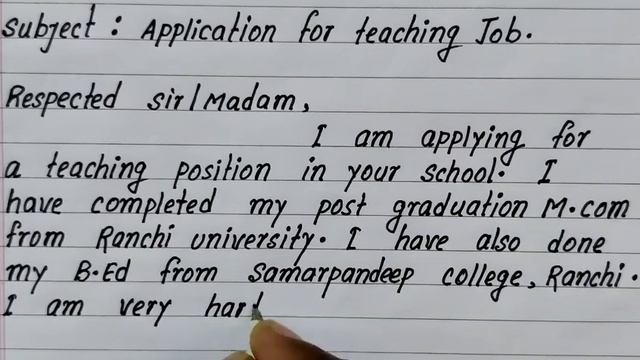 Subject : Application for teaching Job.
Respected sir/Madam,
I am applying for
a teaching position in your school. I
have completed my post graduation M.com
from Ranchi university. I have also done
my B.Ed from Samarpandeep college, Ranchi.
I am very har